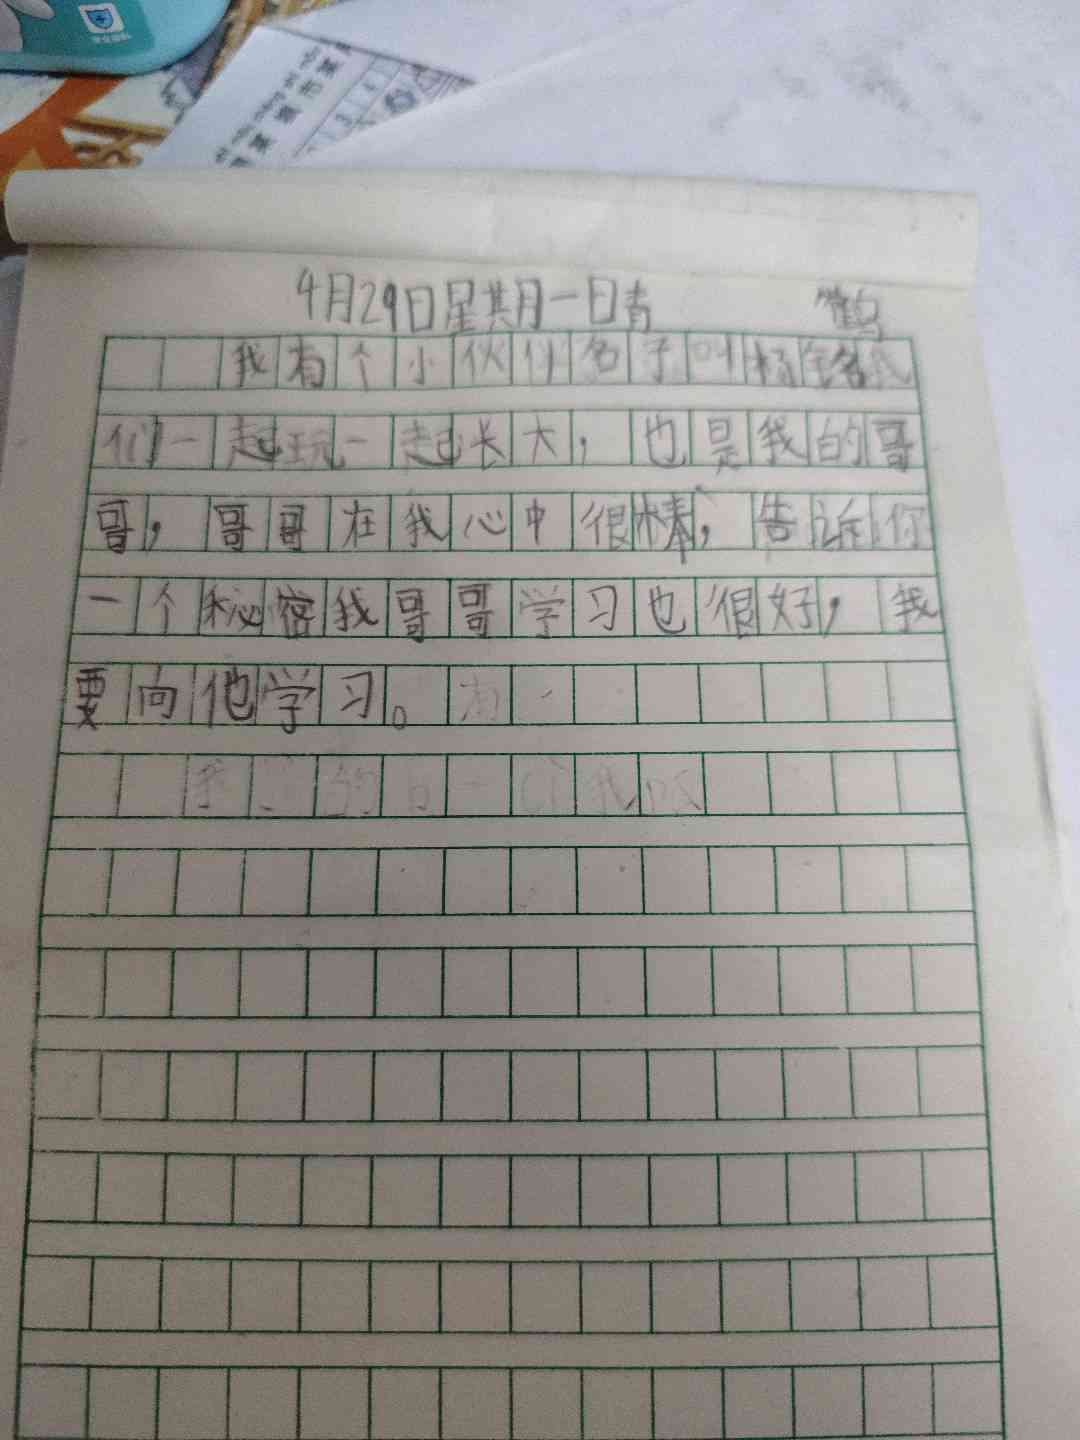 4月29日星期一日青
鹤
我有个小伙伴名子叫杨铭我
们一起玩一起长大，也是我的哥
哥，哥哥在我心中很棒，告诉你
一个秘密我哥哥学习也很好，我
要向他学习。